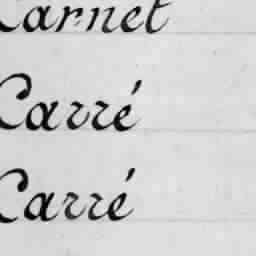 Carnet
Carré
Carré